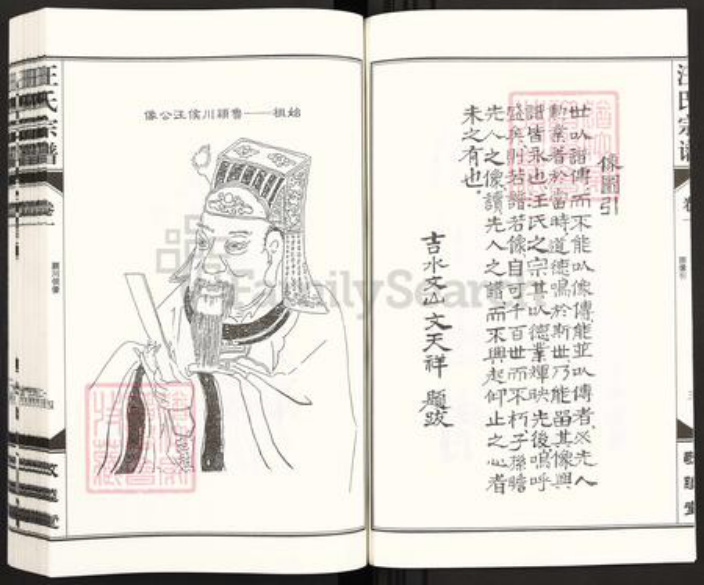 汪氏宗譜
卷一
像圖引
世以譜傳而不能以像傳能並以傳者必先人
勳業著於當時道德鳴於斯世乃能畱其像與
譜皆永也汪氏之宗其以德業輝映先後嗚呼
盛矣則若譜若像自可千百世而不朽子孫瞻
先人之像讀先人之譜而不興起仰止之心者
未之有也
吉水文山文天祥 題跋
始祖——魯潁川侯汪公像
汪氏宗譜
卷一
FamilySearch